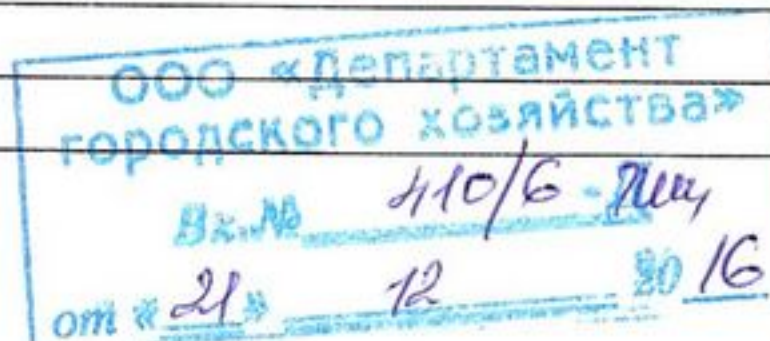 ООО «Департамент
городского хозяйства»
Вх.№ 410/6 -
от «21» 12 2016